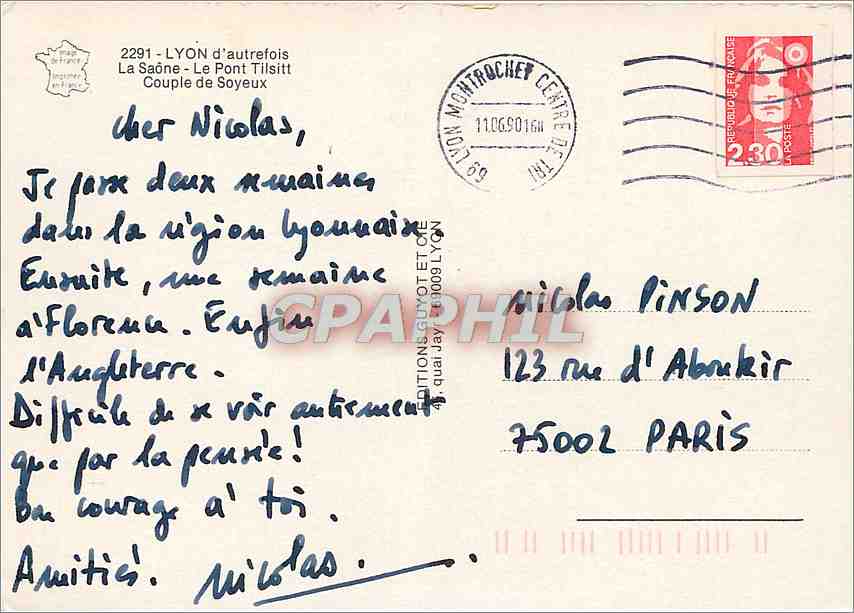 Image
de France
Imprimée
en France
2291 - LYON d'autrefois
La Saône - Le Pont Tilsitt
Couple de Soyeux
69 LYON MONTROCHET CENTRE DE TRI
11.06.90 16H
REPUBLIQUE FRANÇAISE
2.30
LA POSTE
cher Nicolas,
Je passe deux semaines
dans la région lyonnaise.
Ensuite, une semaine
à Florence. Enfin
l'Angleterre.
Difficile de se voir autrement
que par la pensée!
Bon courage à toi.
Amitiés. Nicolas.
EDITIONS GUYOT ET CIE
quai Jayr - 69009 LYON
CPAPHIL
Nicolas PINSON
123 rue d'Aboukir
75002 PARIS